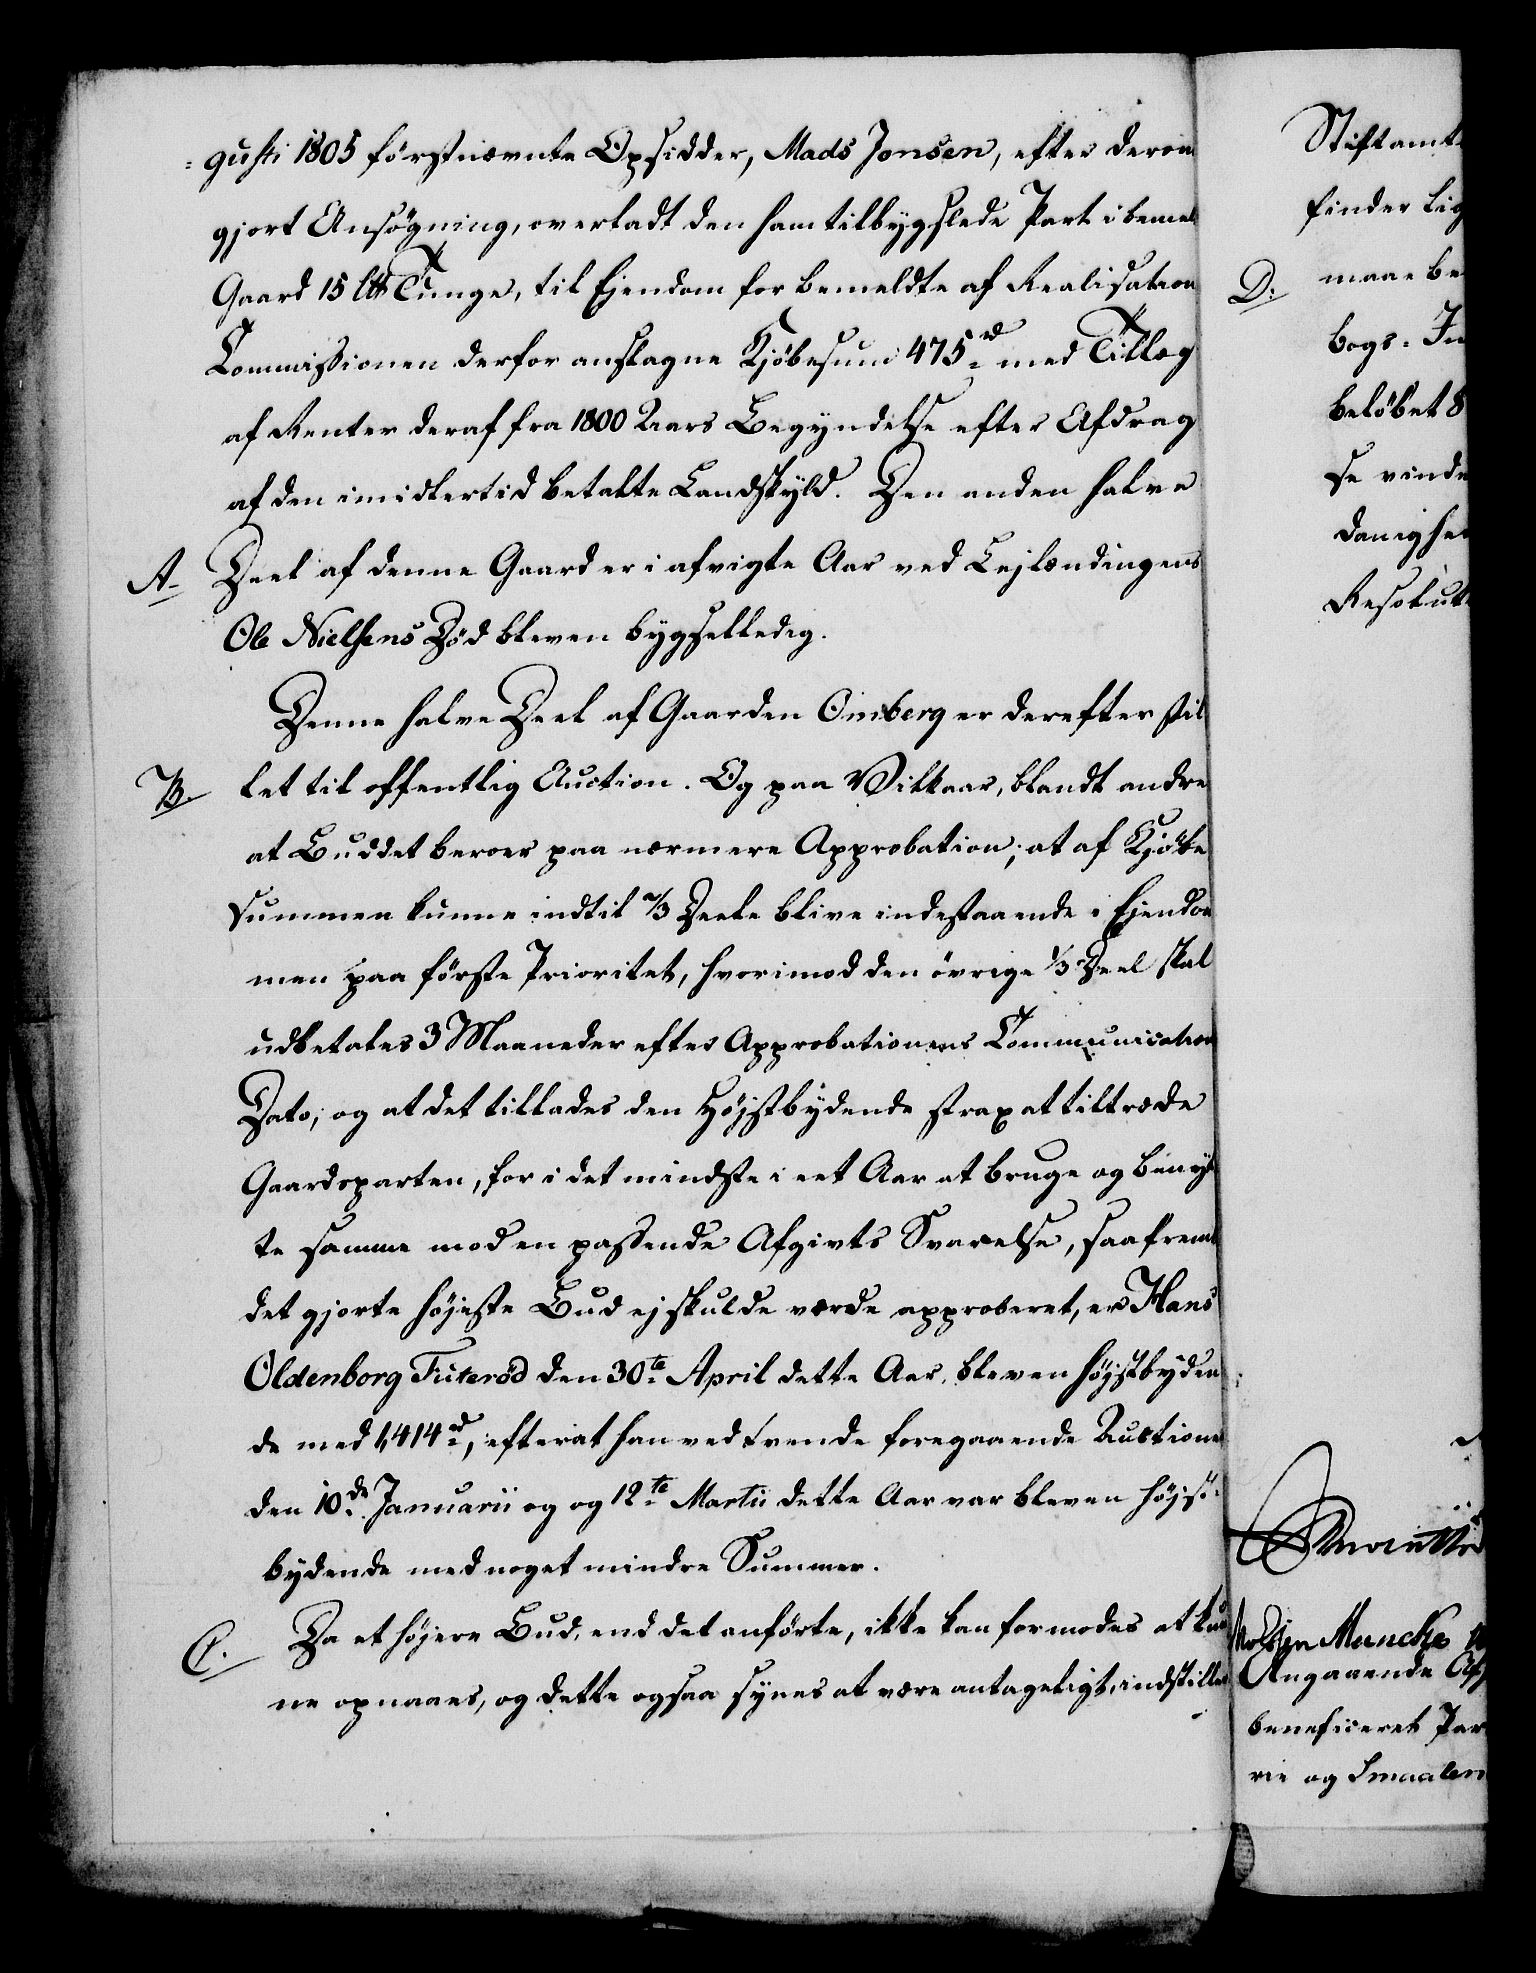 gusti 1805 förstnævnte Opsidder, Mads Jonsen, efter derom
gjort Ansögning, overladt den ham tilbygslede Part i bemel
Gaard 15 lb Tunge, til Ejendom for bemeldte af Realisation
Commissionen derfor anslagne Kjöbesum 475 rd med Tillæg
af Renter deraf fra 1800 Aars Begyndelse efter Afdrag
af den imidlertid betalte Landskyld. Den anden halve
A. Deel af denne Gaard er i afvigte Aar ved Lejlændingens
Ole Nielsens Död bleven bygselledig.
Denne halve Deel af Gaarden Omberg er derefter stil
B. let til offentlig Auction. Og paa Vilkaar, blandt andre
at Buddet beroer paa nærmere Approbation; at af Kjöbe
summen kunne indtil 2/3 Deele blive indestaaende i Ejendom
men paa förste Prioritet, hvorimod den övrige 1/3 Deel skal
udbetales 3 Maaneder efter Approbationens Communication
Dato; og at det tillades den Höjstbydende strax at tiltræde
Gaardsparten, for i det mindste i eet Aar at bruge og benyt
te samme mod en passende Afgivts Svarelse, saafremt
det gjorte höjeste Bud ej skulde vorde approberet, er Hans
Oldenborg Fiiteröd den 30te April dette Aar, bleven höjstbyden
de med 1,414 rd, efterat han ved tvende foregaaende Auctioner
den 10de Januarii og og 12te Martii dette Aar var bleven höjst-
bydende med noget mindre Summer.
C. Da et höjere Bud, end det anförte, ikke kan formodes at kun
ne opnaaes, og dette ogsaa synes at være antageligt, indstilles
Stiftamt
finder lig
D. maae be
bogs. In
belöbet 8
se vinde
danighe
Resolut
Muncke
Angaaende Af
beneficeret Par
rie og Smaalen